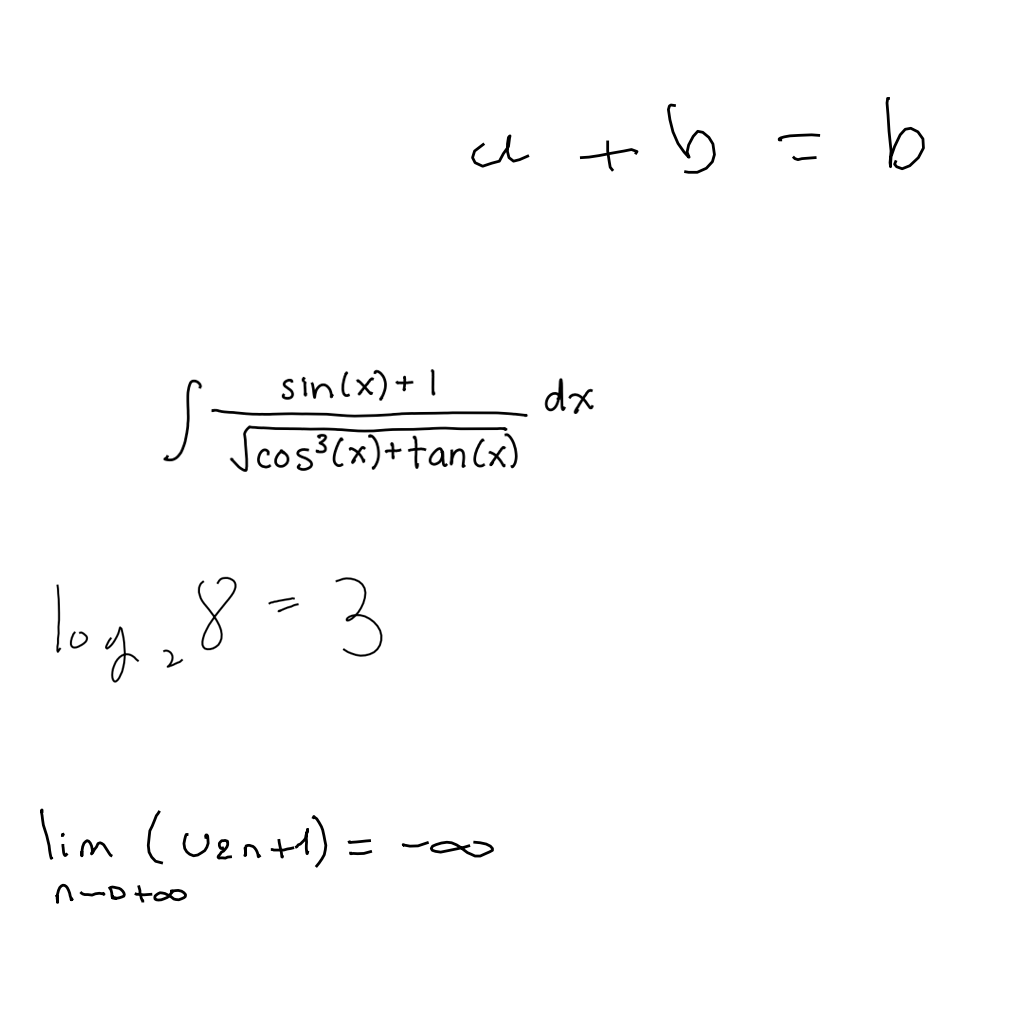 a + b = b
∫ (sin(x)+1)/(√(cos³(x)+tan(x))) dx
log₂ 8 = 3
lim (u₂ₙ₊₁) = -∞
n→+∞